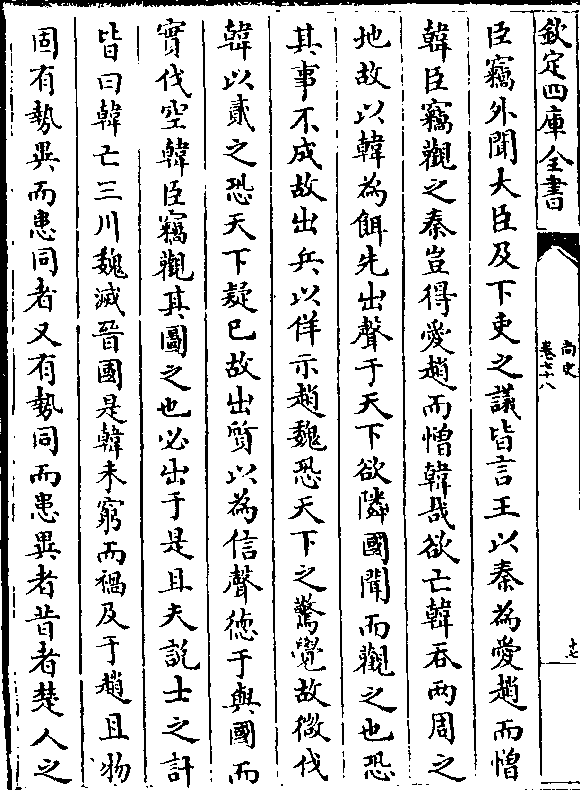 欽定四庫全書
尚史
卷六十八
臣竊外聞大臣及下吏之議皆言王以秦為愛趙而憎
韓臣竊觀之秦豈得愛趙而憎韓哉欲亡韓吞兩周之
地故以韓為餌先出聲于天下欲隣國聞而觀之也恐
其事不成故出兵以佯示趙魏恐天下之驚覺故微伐
韓以貳之恐天下疑已故出質以為信聲徳于與國而
實伐空韓臣竊觀其圖之也必出于是且夫說士之計
皆曰韓亡三川魏滅晉國是韓未窮而禍及于趙且物
固有勢異而患同者又有勢同而患異者昔者楚人之